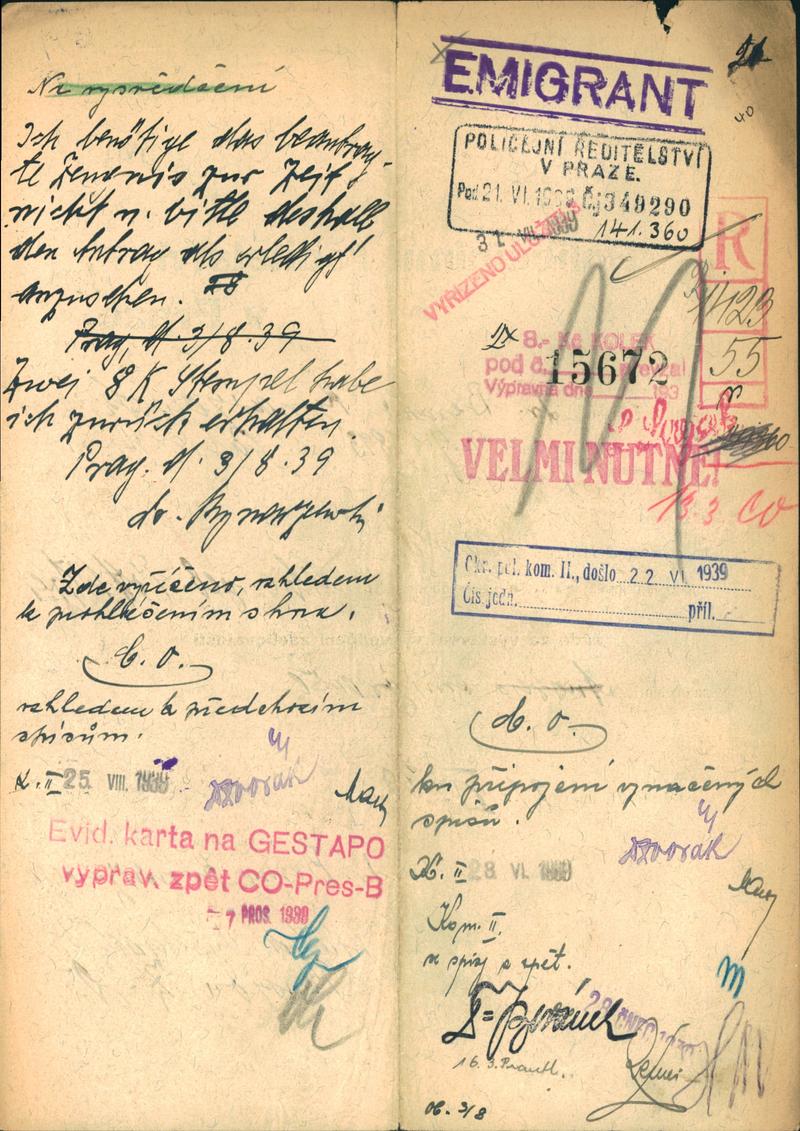 Na vysvědčení
Ich benötige das beantrag-
te Zeugnis zur Zeit
nicht u. bitte deshalb
den Antrag als erledigt
anzusehen.
Prag, d. 3/8.39
Zwei 8 K Stempel habe
ich zurück erhalten.
Prag. d. 3/8.39
dr.
Zde vyřízeno, vzhledem
k prohlášením shora.
C. O.
vzhledem k předchozím
spisům.
K. II 25. VIII. 1939
Dvořák
Evid. karta na GESTAPO
výprav. zpět CO-Pres-B
-7 PROS. 1939
21
EMIGRANT
40
POLICEJNÍ ŘEDITELSTVÍ
V PRAZE.
Pod 21. VI. 1939 Čj 349290
141.360
31. VII. 1939
VYŘÍZENO ULOŽENO
R
1423
55
8.- Kč KOLEK
pod č.
15672
Výpravna dne 193
VELMI NUTNÉ!
13.3 CO
Okr. pol. kom. II., došlo 22 VI. 1939
Čís. jedn. příl.
C. O.
ku připojení vyznačených
spisů.
Dvořák
K. II 28. VI. 1939
Kom. II.
se spisy zpět.
16. 3.
Ob. 3/8